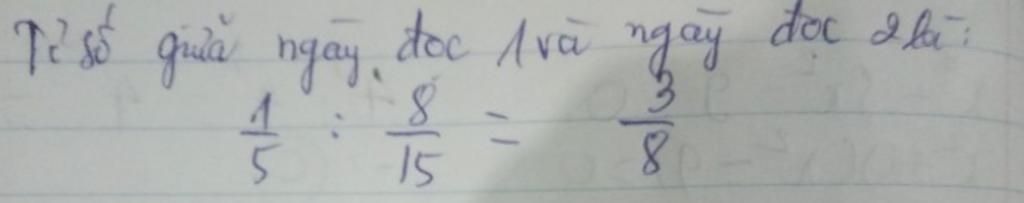 Tỉ số giữa ngày đọc 1 và ngày đọc 2 là:
1/5 : 8/15 = 3/8